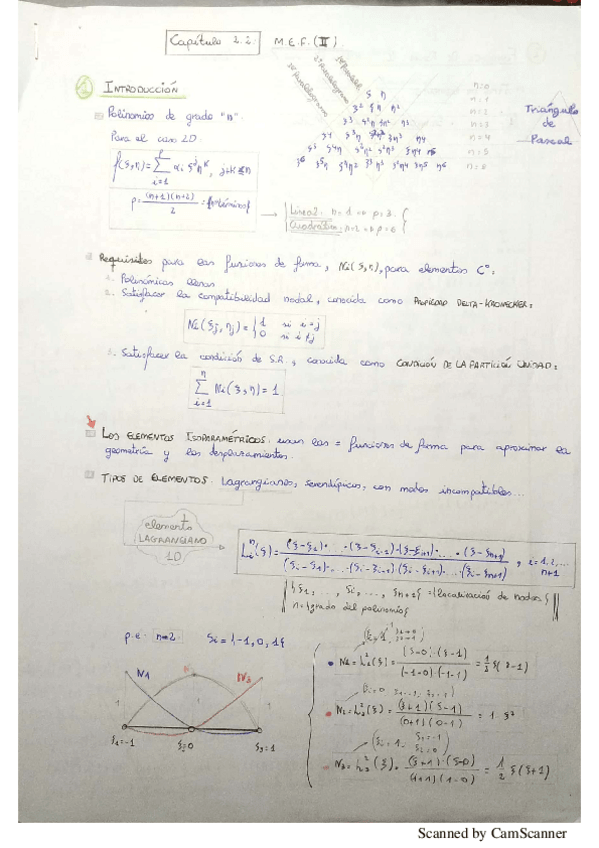 Capítulo 2.2: M.E.F. (II)
1 INTRODUCCIÓN
Polinomios de grado "n".
Para el caso 2D
f(ξ,η) = Σ αi ξ^j η^k , j+k≤n
i=1
p = (n+1)(n+2)/2 = {términos}
Lineal: n=1 ⇒ p=3.
Cuadrático: n=2 ⇒ p=6
ξ η
ξ² ξη η²
ξ³ ξ²η ξη² η³
n=0
n=1
n=2
n=3
n=4
n=5
n=6
Triángulo
de
Pascal
Requisitos para las funciones de forma, Ni(ξ,η), para elementos C⁰:
1. Polinómicas llenas
2. Satisfacer la compatibilidad nodal, conocida como PROPIEDAD DELTA-KRONECKER:
Ni(ξj,ηj) = {1 si i=j
0 si i≠j
3. Satisfacer la condición de S.R, conocida como CONDICIÓN DE LA PARTICIÓN UNIDAD:
n
Σ Ni(ξ,η) = 1.
i=1
LOS ELEMENTOS ISOPARAMÉTRICOS: usan las = funciones de forma para aproximar la
geometría y los desplazamientos.
TIPOS DE ELEMENTOS: Lagrangianos, serendípicos, con modos incompatibles...
elemento
LAGRANGIANO
1D
L_i^n(ξ) = (ξ-ξ1)·...·(ξ-ξi-1)·(ξ-ξi+1)·...·(ξ-ξn+1) / (ξi-ξ1)·...·(ξi-ξi-1)(ξi-ξi+1)·...·(ξi-ξn+1) , i=1,2,...
n+1
{ξ1, ..., ξi, ..., ξn+1} = {localización de nodos}
n = {grado del polinomio}
p.e: n=2. ξi = {-1, 0, 1}
N1
N3
1
1
ξ1=-1
ξ2=0
ξ3=1
N1 = L_1^2(ξ) = (ξ-0)·(ξ-1) / (-1-0)·(-1-1) = 1/2 ξ(ξ-1)
N2 = L_2^2(ξ) = (ξ+1)(ξ-1) / (0+1)(0-1) = 1-ξ²
(ξi=1 ξ1=-1 ξ2=0)
N3 = L_3^2(ξ) = (ξ+1)·(ξ-0) / (1+1)(1-0) = 1/2 ξ(ξ+1)
Scanned by CamScanner